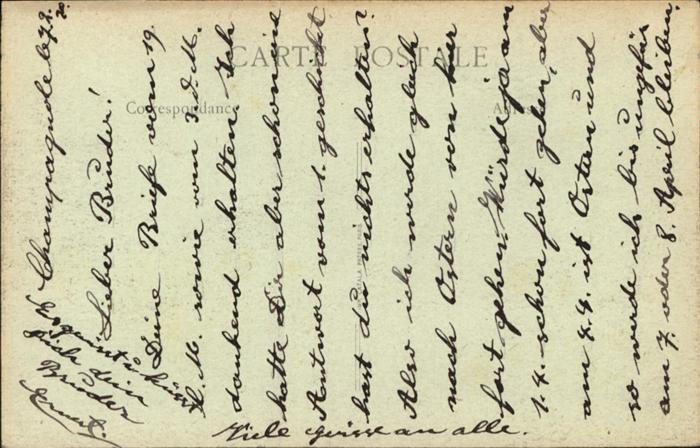 CARTE POSTALE
Correspondance
Champagnole
20.
Lieber Bruder!
Deine Briefe vom 19.
v. M. sowie vom 3. d. M.
dankend erhalten. Ich
hatte Dir aber schon eine
Antwort vom 1. geschickt
hast du nichts erhalten?
Also ich werde gleich
nach Ostern von hier
fort gehen. Würde ja am
1. 4. schon fort gehen, aber
am 4. 4. ist Ostern und
so werde ich bis ungfär
am 7. oder 8. April bleiben.
Es grüsst u. küsst
Dich dein
Bruder
Viele grüsse an alle.